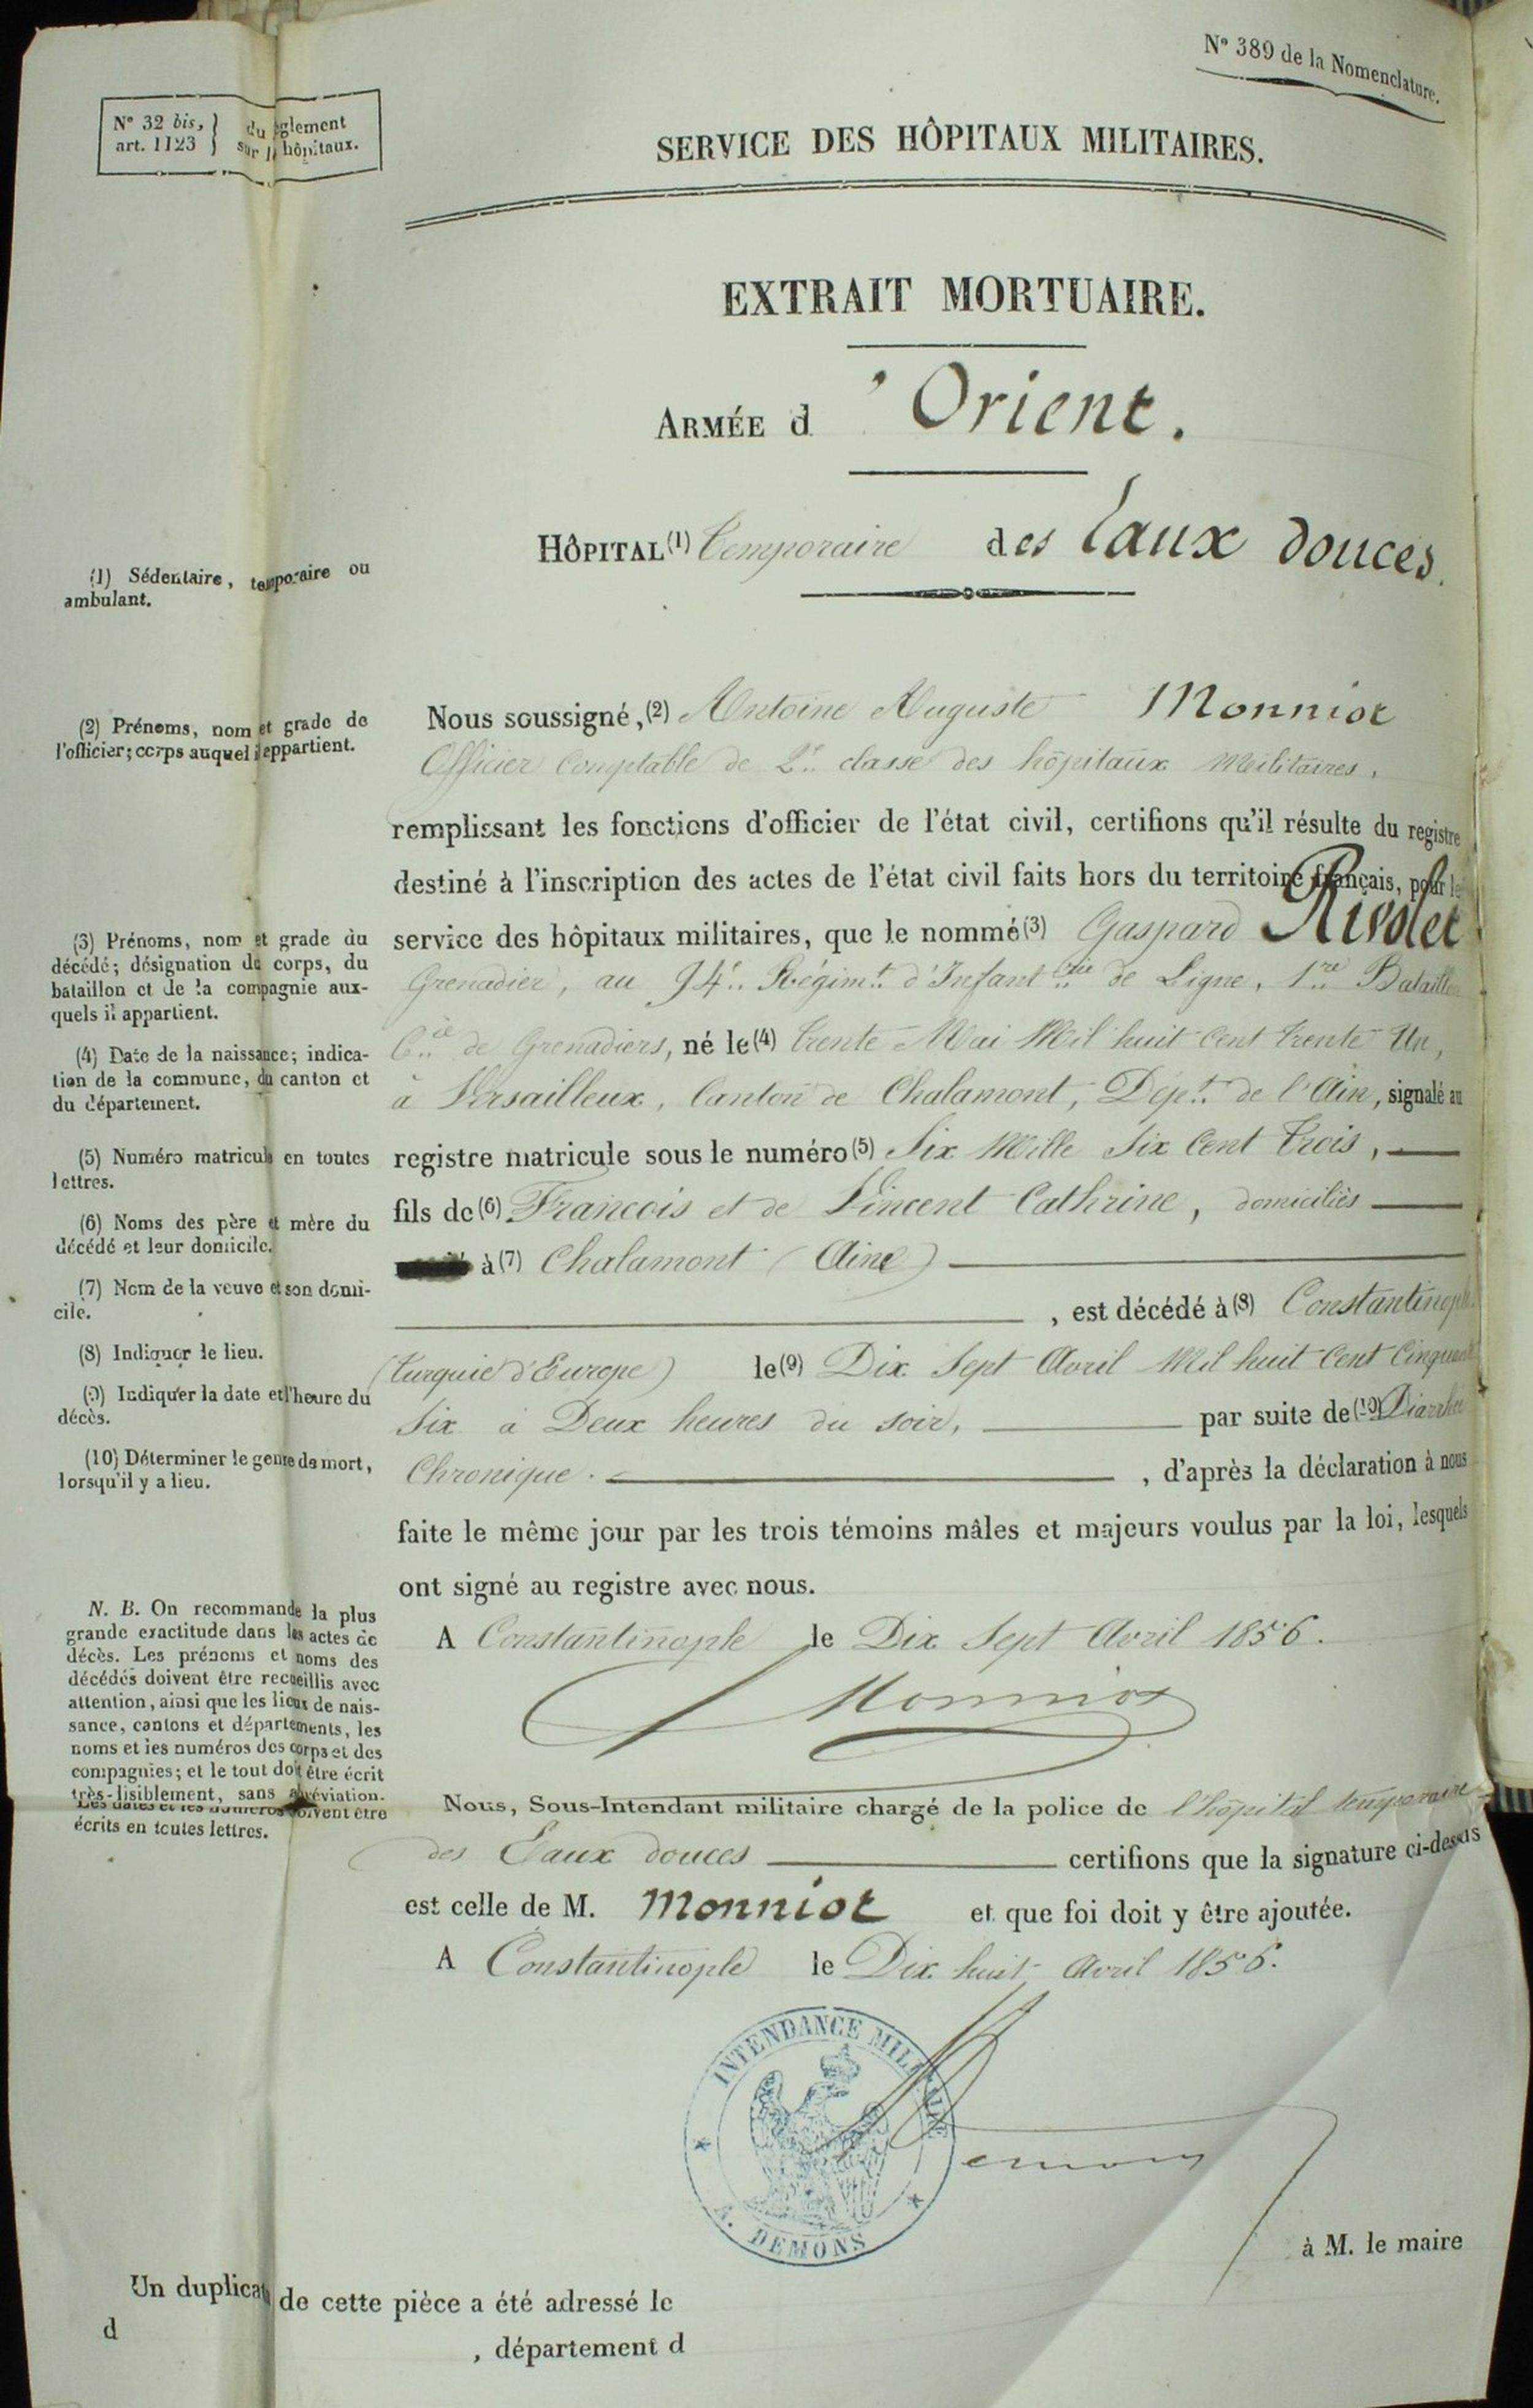 N° 389 de la Nomenclature.
N° 32 bis, art. 1123 } du règlement sur les hôpitaux.
SERVICE DES HÔPITAUX MILITAIRES.
EXTRAIT MORTUAIRE.
ARMÉE d'Orient.
HÔPITAL (1) temporaire des Eaux douces.
(1) Sédentaire, temporaire ou
ambulant.
(2) Prénoms, nom et grade de
l'officier; corps auquel il appartient.
Nous soussigné, (2) Antoine Auguste Monniot
Officier Comptable de 2e classe des hôpitaux Militaires,
remplissant les fonctions d'officier de l'état civil, certifions qu'il résulte du registre
destiné à l'inscription des actes de l'état civil faits hors du territoire français, pour le
service des hôpitaux militaires, que le nommé (3) Gaspard Rivolet
Grenadier, au 94e Régimt d'Infantrie de Ligne, 1re Bataillon
Cie de Grenadiers, né le (4) trente Mai Mil huit Cent trente Un,
à Versailleux, Canton de Chalamont, Dépt de l'Ain, signalé au
registre matricule sous le numéro (5) Six Mille Six Cent trois,
fils de (6) Francois et de Vincent Cathrine, domiciliès
à (7) Chalamont (Aine)
, est décédé à (8) Constantinople
(turquie d'Europe) le (9) Dix Sept Avril Mil huit Cent Cinquante
Six à Deux heures du soir, par suite de (10) Diarrhée
Chronique. , d'après la déclaration à nous
faite le même jour par les trois témoins mâles et majeurs voulus par la loi, lesquels
ont signé au registre avec nous.
A Constantinople le Dix Sept Avril 1856.
Monniot
(3) Prénoms, nom et grade du
décédé; désignation du corps, du
bataillon et de la compagnie aux-
quels il appartient.
(4) Date de la naissance; indica-
tion de la commune, du canton et
du département.
(5) Numéro matricule en toutes
lettres.
(6) Noms des père et mère du
décédé et leur domicile.
(7) Nom de la veuve et son domi-
cile.
(8) Indiquer le lieu.
(9) Indiquer la date et l'heure du
décès.
(10) Déterminer le genre de mort,
lorsqu'il y a lieu.
N. B. On recommande la plus
grande exactitude dans les actes de
décès. Les prénoms et noms des
décédés doivent être recueillis avec
attention, ainsi que les lieux de nais-
sance, cantons et départements, les
noms et les numéros des corps et des
compagnies; et le tout doit être écrit
très-lisiblement, sans abréviation.
Les dates et les numéros doivent être
écrits en toutes lettres.
Nous, Sous-Intendant militaire chargé de la police de l'hôpital temporaire
des Eaux douces certifions que la signature ci-dessus
est celle de M. Monniot et que foi doit y être ajoutée.
A Constantinople le Dix huit Avril 1856.
INTENDANCE MILITAIRE
DEMONS
Demons
à M. le maire
Un duplicata de cette pièce a été adressé le
d , département d